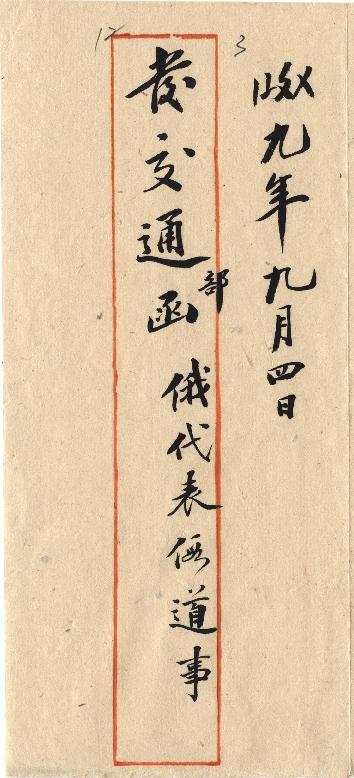 3
九年九月四日
12
發交通部函 俄代表假道事